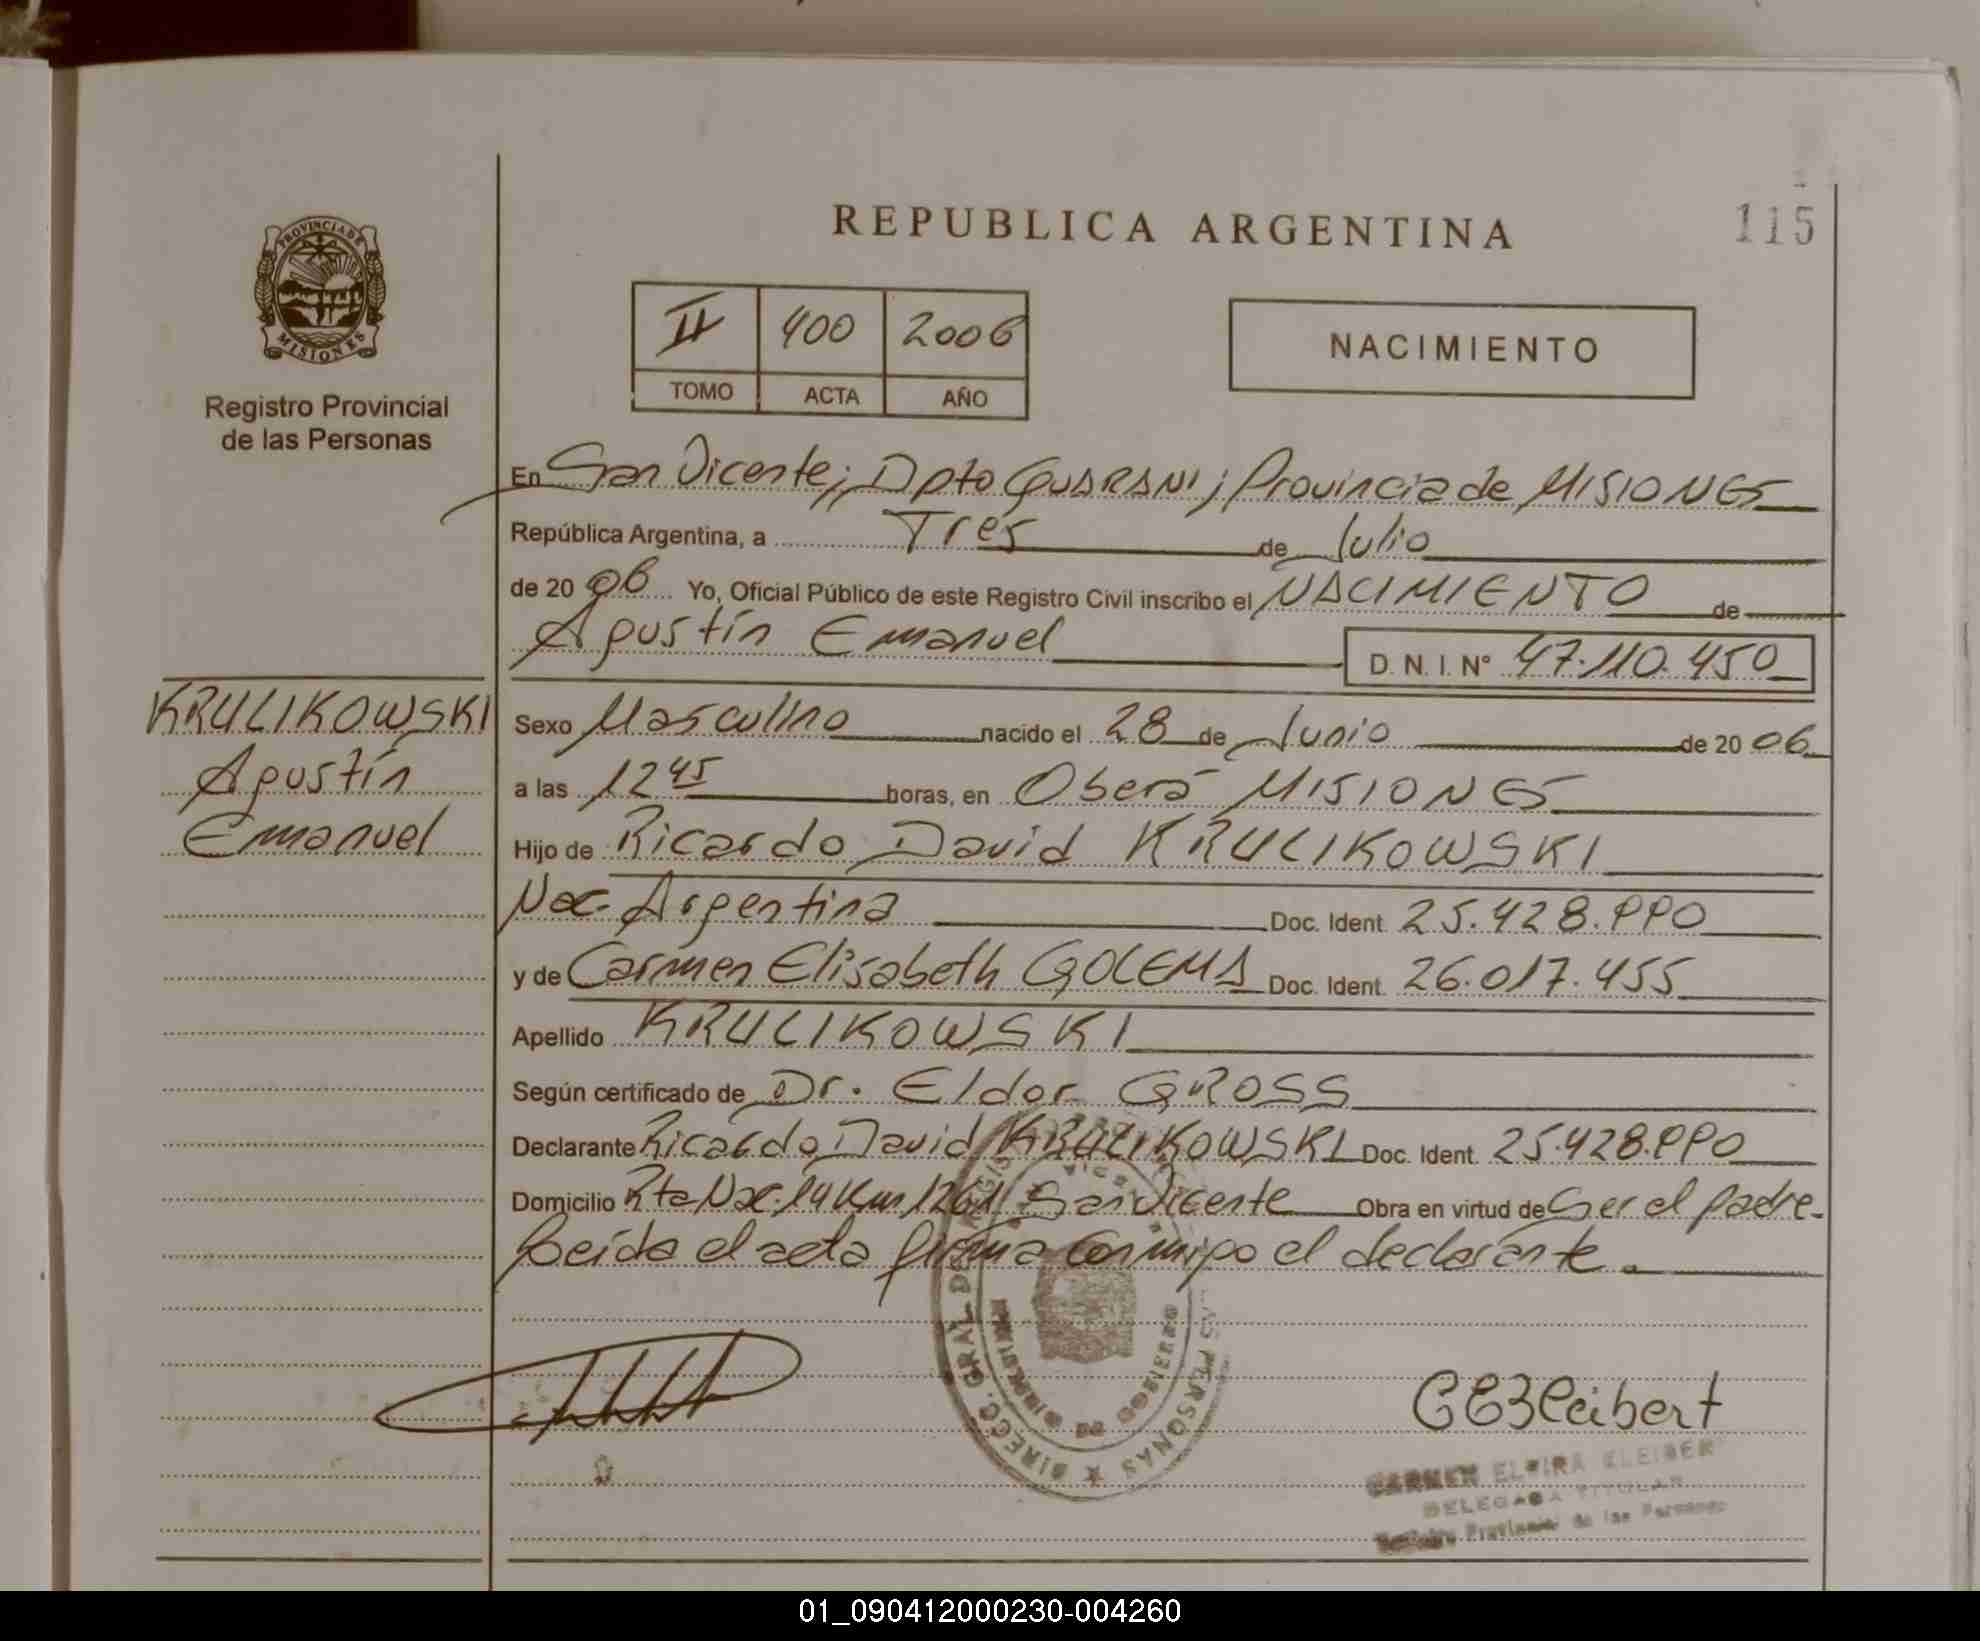 REPUBLICA ARGENTINA
115
PROVINCIA DE
MISIONES
Registro Provincial
de las Personas
II 400 2006
TOMO ACTA AÑO
NACIMIENTO
En San Vicente; Dpto GUARANI; Provincia de MISIONES
República Argentina, a Tres de Julio
de 20 06 Yo, Oficial Público de este Registro Civil inscribo el NACIMIENTO de
Agustín Emanuel D. N. I. N° 47.110.450
KRULIKOWSKI
Agustín
Emanuel
Sexo Masculino nacido el 28 de Junio de 20 06
a las 12 45 horas, en Oberá MISIONES
Hijo de Ricardo David KRULIKOWSKI
Nac. Argentina Doc. Ident. 25.428.990
y de Carmen Elisabeth GOLEMA Doc. Ident. 26.017.455
Apellido KRULIKOWSKI
Según certificado de Dr. Eldor GROSS
Declarante Ricardo David KRULIKOWSKI Doc. Ident. 25.428.990
Domicilio Rta Nac. 14 Km 1261 San Vicente Obra en virtud de Ser el padre.
Leída el acta firma conmigo el declarante.
DIRECC. GRAL. DE PERSONAS
CEBleibert
CARMEN ELVIRA
DELEGADA TITULAR
Registro Provincial de las Personas
01_090412000230-004260